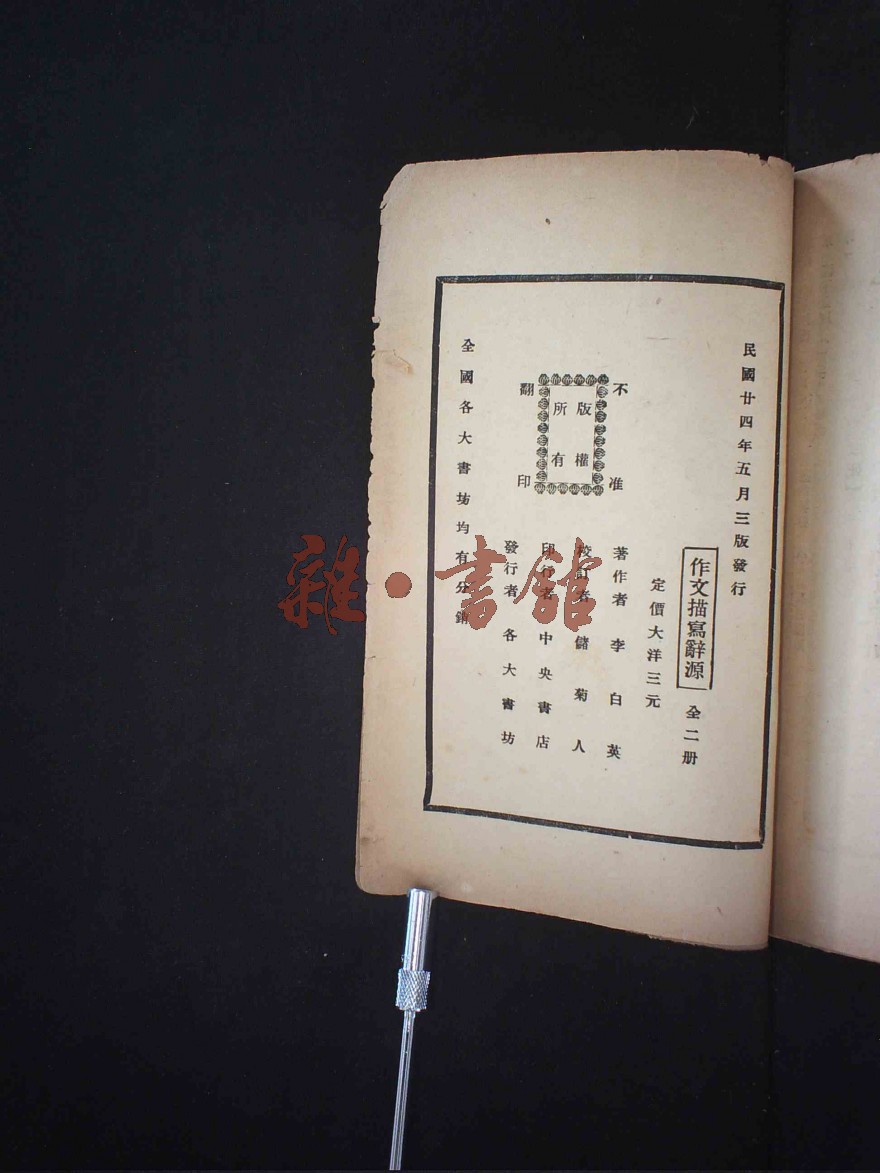 民國廿四年五月三版發行
作文描寫辭源 全二册
定價大洋三元
不准
翻印
版權
所有
著作者 李白英
校訂者 儲菊人
印行者 中央書店
發行者 各大書坊
全國各大書坊均有分銷
雜·書館